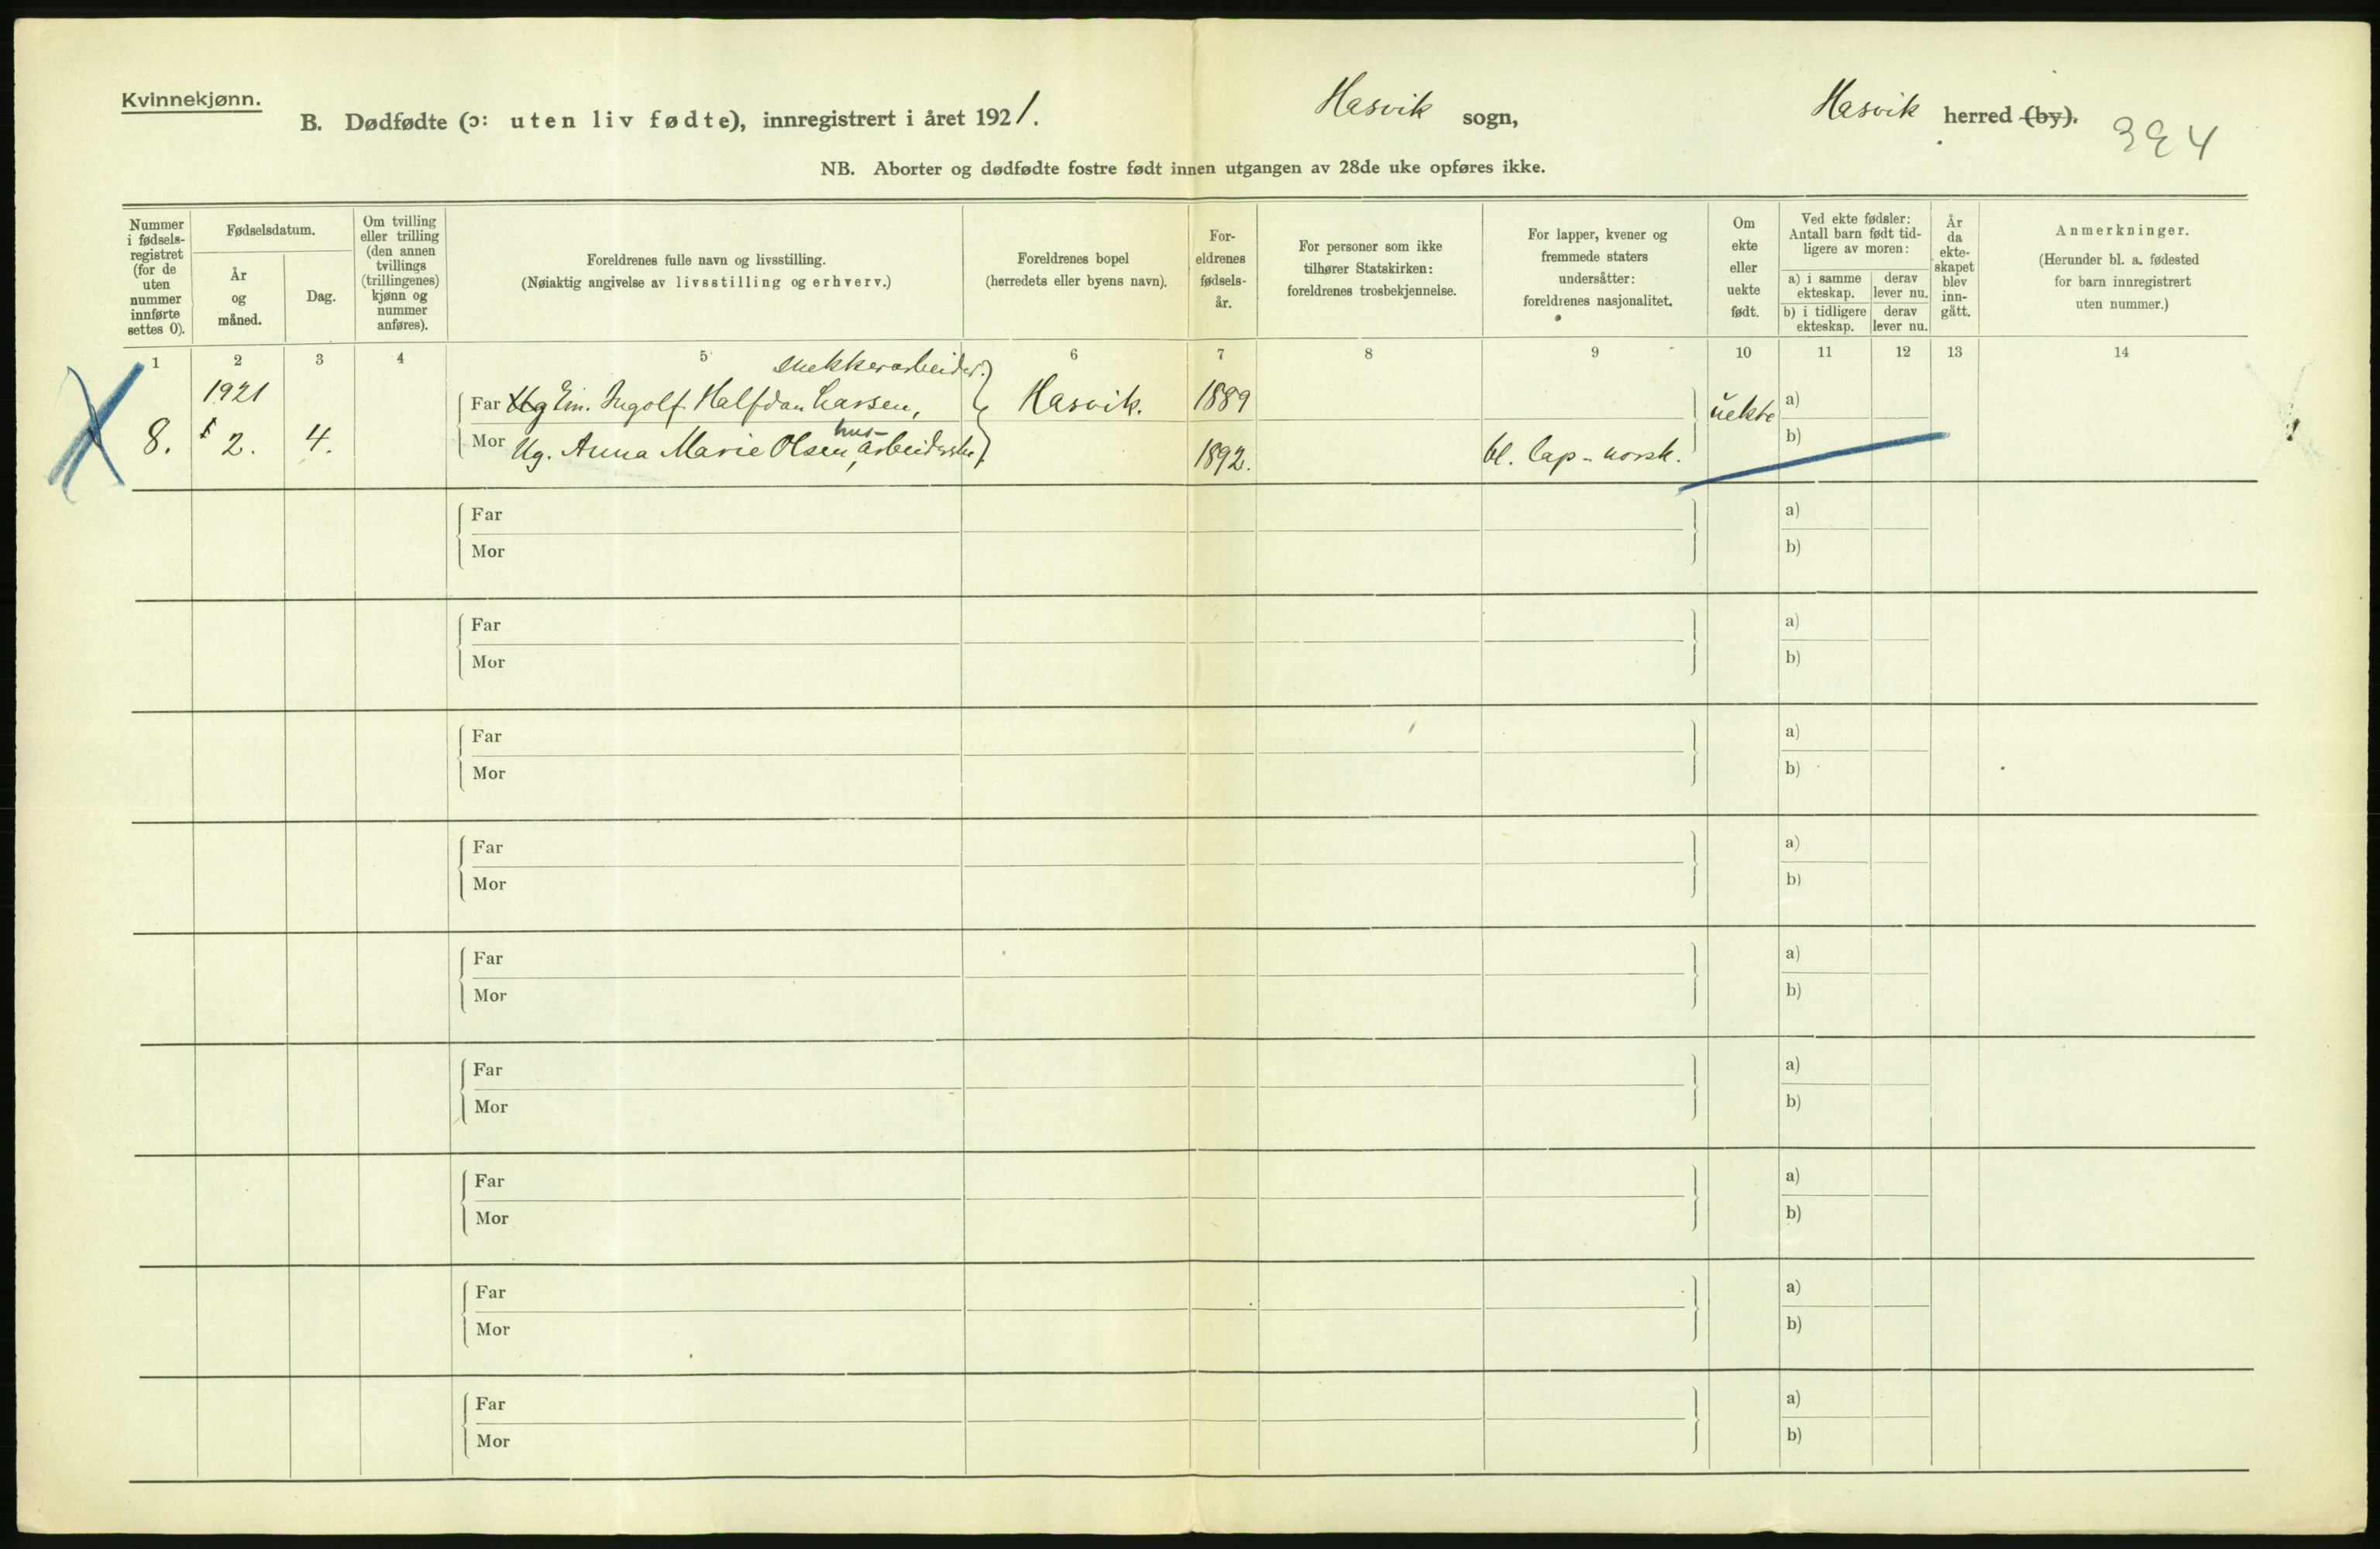 Kvinnekjønn.
B. Dødfødte (ɔ: uten liv fødte), innregistrert i året 1921. Hasvik sogn, Hasvik herred (by).
394
NB. Aborter og dødfødte fostre født innen utgangen av 28de uke opføres ikke.
Nummer i fødsels-registret (for de uten nummer innførte settes 0).
Fødselsdatum.
År og måned.
Dag.
Om tvilling eller trilling (den annen tvillings (trillingenes) kjønn og nummer anføres).
Foreldrenes fulle navn og livsstilling.
(Nøiaktig angivelse av livsstilling og erhverv.)
Foreldrenes bopel
(herredets eller byens navn).
For-eldrenes fødsels-år.
For personer som ikke tilhører Statskirken: foreldrenes trosbekjennelse.
For lapper, kvener og fremmede staters undersåtter: foreldrenes nasjonalitet.
Om ekte eller uekte født.
Ved ekte fødsler: Antall barn født tid-ligere av moren:
a) i samme ekteskap.
derav lever nu.
b) i tidligere ekteskap.
derav lever nu.
År da ekte-skapet blev inn-gått.
Anmerkninger.
(Herunder bl. a. fødested for barn innregistrert uten nummer.)
1 2 3 4 5 6 7 8 9 10 11 12 13 14
snekkerarbeider.
1921 Far Ug Em. Ingolf Halfdan Larsen, Hasvik. 1889 uekte a)
hus-
8. 2. 4. Mor Ug. Anna Marie Olsen, arbeiderske 1892. bl. lap-norsk. b)
Far a)
Mor b)
Far a)
Mor b)
Far a)
Mor b)
Far a)
Mor b)
Far a)
Mor b)
Far a)
Mor b)
Far a)
Mor b)
Far a)
Mor b)
Far a)
Mor b)